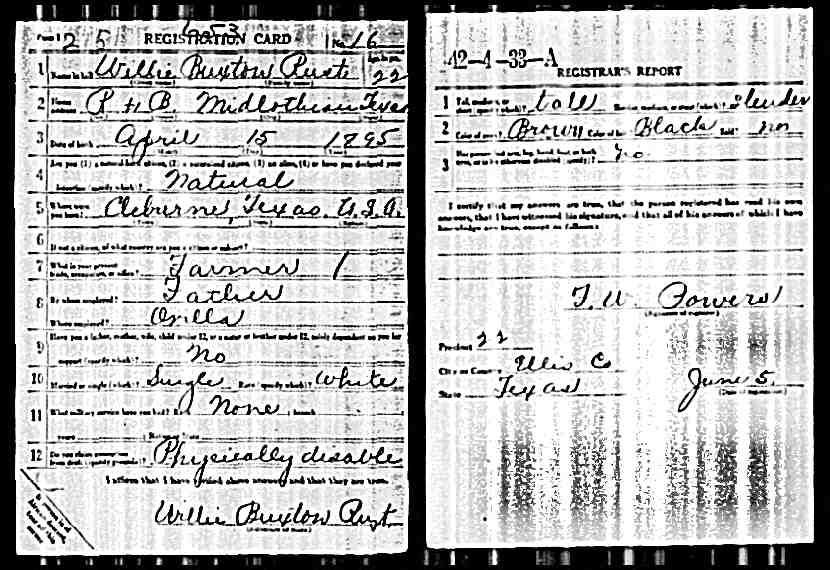 Form 1 25 6053 REGISTRATION CARD No. 16
1 Name in full Willie Buxton Rust Age, in yrs. 22
2 Home address R # B. Midlothian Texas
3 Date of birth April 15 1895
4 Are you (1) a natural-born citizen, (2) a naturalized citizen, (3) an alien, (4) or have you declared your
intention (specify which)? Natural
5 Where were you born? Cleburne, Texas. U.S.A.
6 If not a citizen, of what country are you a citizen or subject?
7 What is your present trade, occupation, or office? Farmer 1
8 By whom employed? Father
Where employed? Ovilla
9 Have you a father, mother, wife, child under 12, or a sister or brother under 12, solely dependent on you for
support (specify which)? No
10 Married or single (which)? Single Race (specify which)? White
11 What military service have you had? Rank None ; branch
years ; Nation or State
12 Do you claim exemption from draft (specify grounds)? Physically disable
I affirm that I have verified above answers and that they are true.
Willie Buxton Rust
42-4-33-A
REGISTRAR'S REPORT
1 Tall, medium, or short (specify which)? tall Slender, medium, or stout (which)? slender
2 Color of eyes? Brown Color of hair? Black Bald? no
3 Has person lost arm, leg, hand, foot, or both eyes, or is he otherwise disabled (specify)? no.
I certify that my answers are true, that the person registered has read his own
answers, that I have witnessed his signature, and that all of his answers of which I have
knowledge are true, except as follows:
T. W. Powers
(Signature of registrar)
Precinct 22
City or County Ellis Co
State Texas June 5.
(Date of registration)